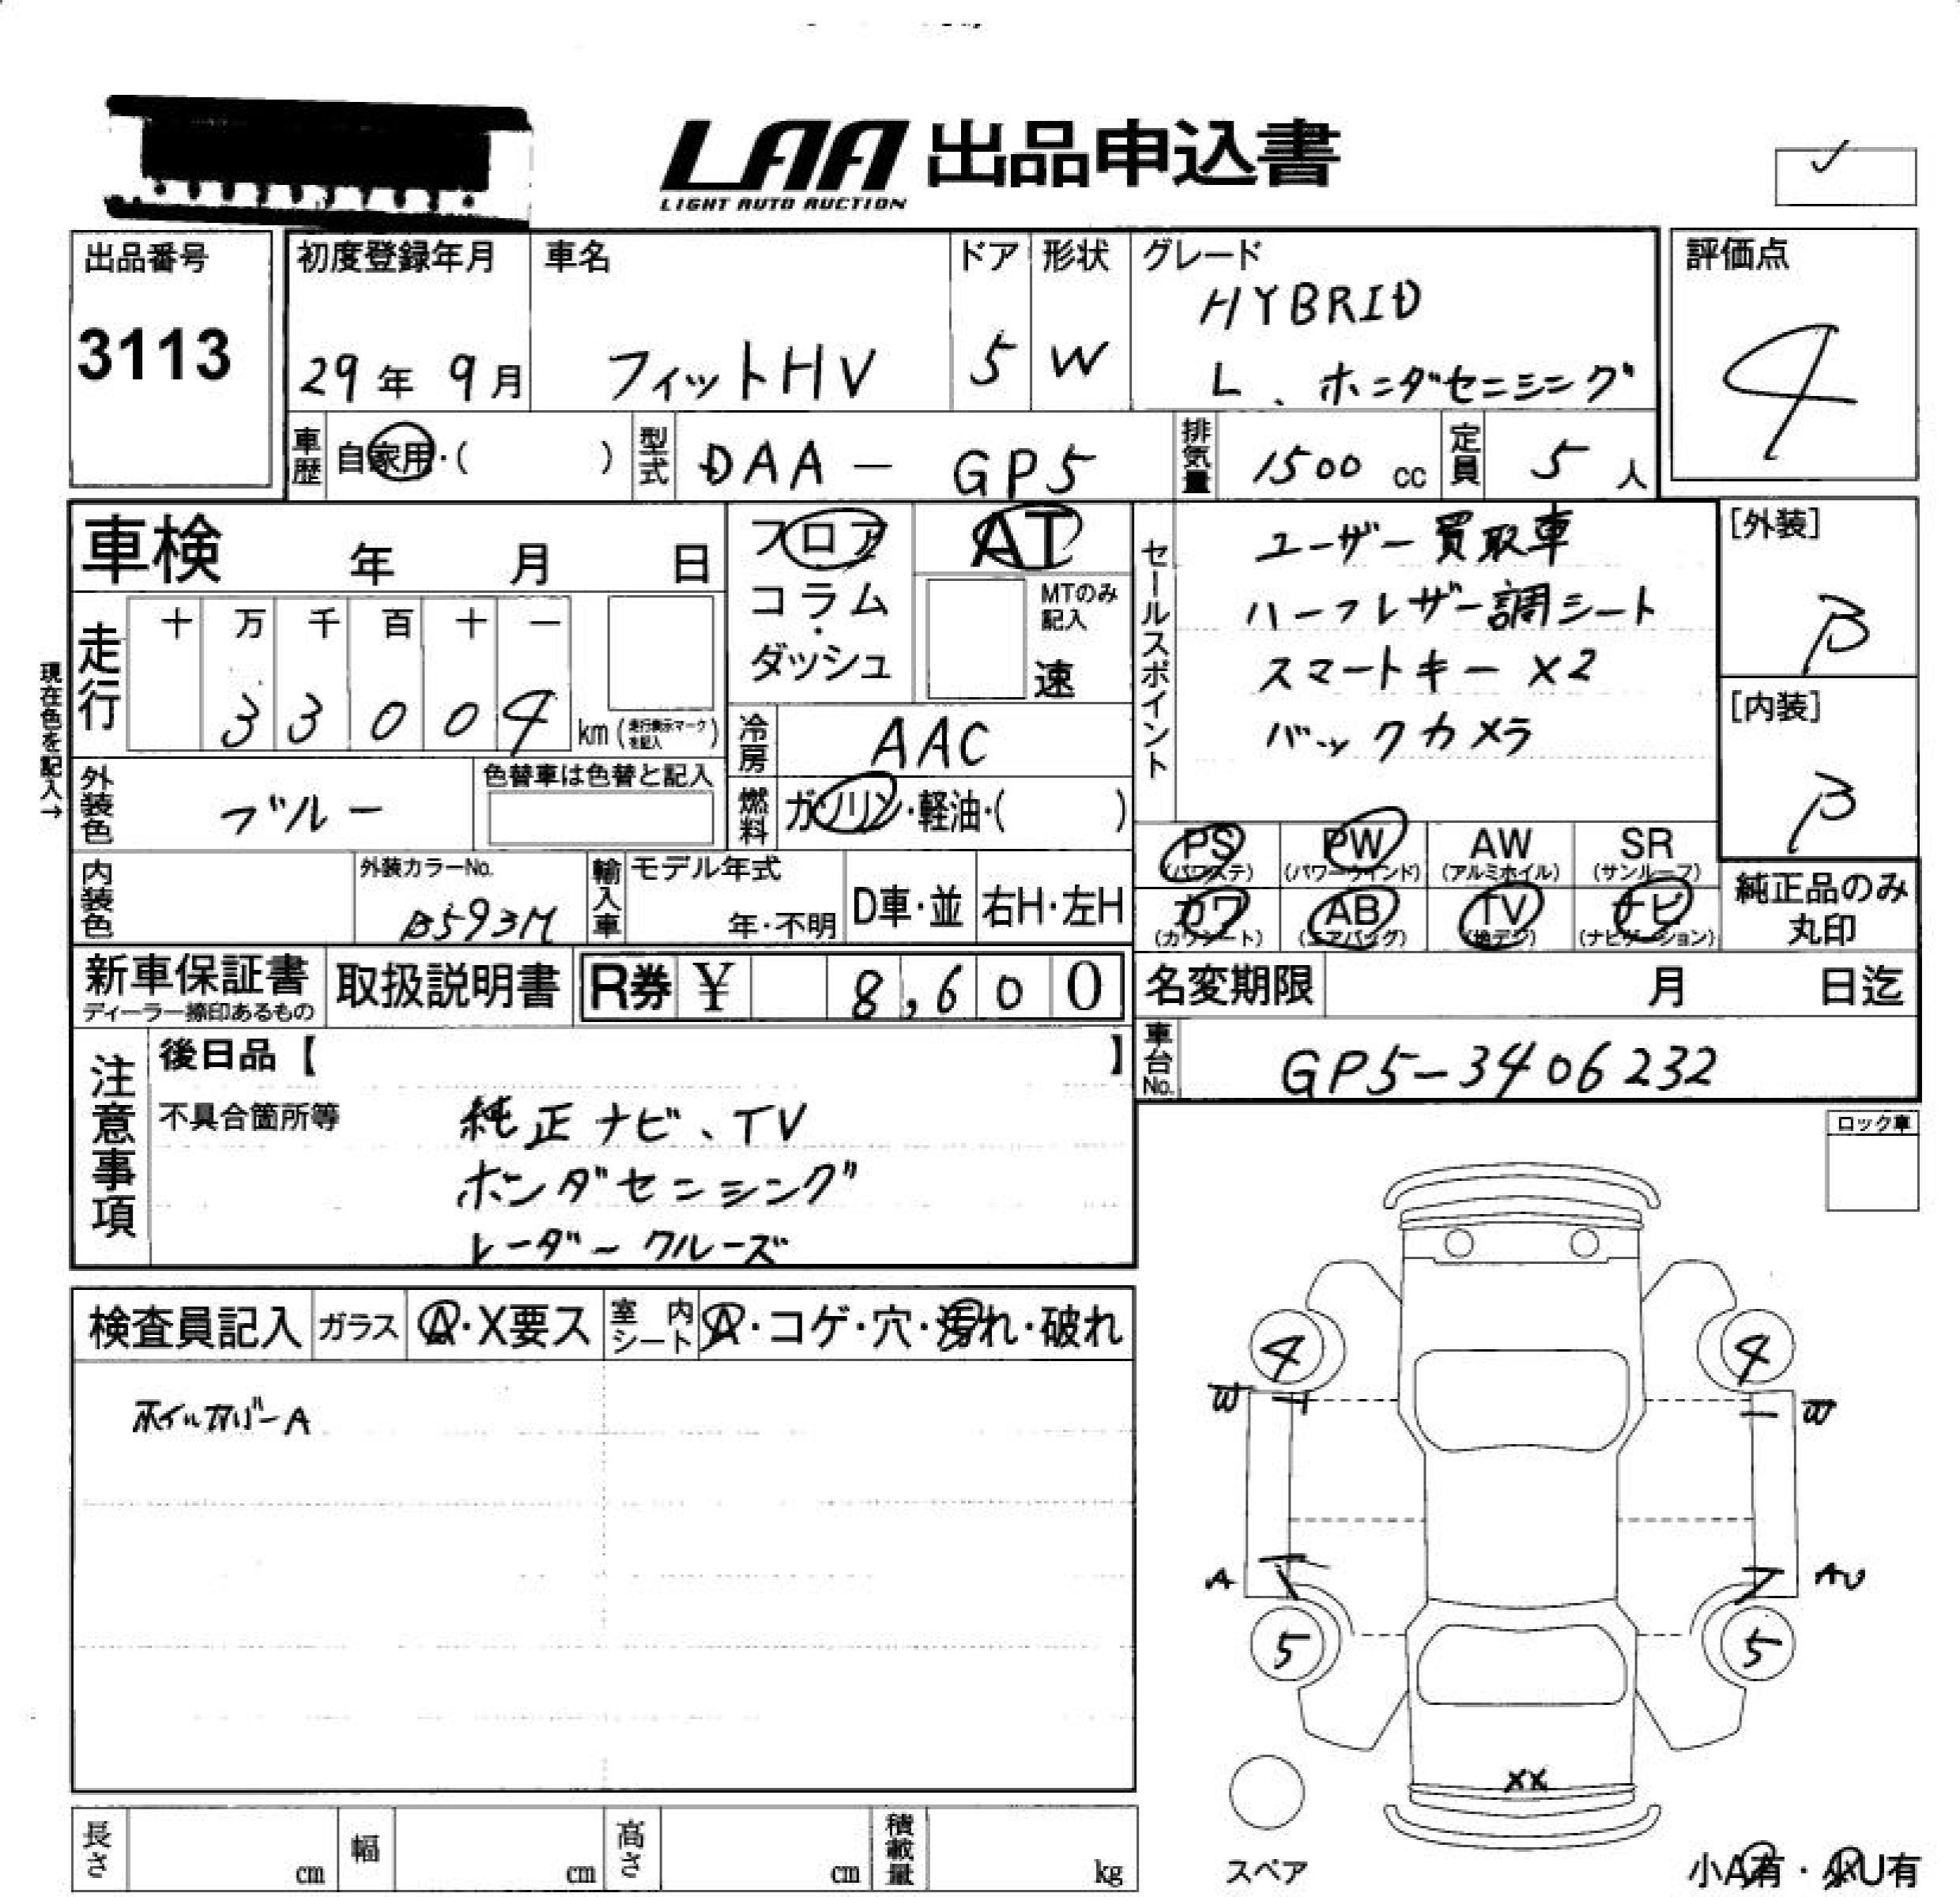 LAA 出品申込書
LIGHT AUTO AUCTION
出品番号
3113
初度登録年月
29年 9月
車名
フィットHV
ドア
5
形状
W
グレード
HYBRID
L、ホンダセンシング
評価点
4
車歴 自家用・( )
型式 DAA- GP5
排気量 1500 cc
定員 5 人
車検 年 月 日
フロア
コラム
・
ダッシュ
AT
MTのみ
記入
速
現在色を記入→
走行 十 万 千 百 十 一
3 3 0 0 4 km (走行表示マークを記入)
冷房 AAC
燃料 ガソリン・軽油・( )
外装色 ブルー
色替車は色替と記入
内装色
外装カラーNo.
B593M
輸入車 モデル年式
年・不明
D車・並
右H・左H
セールスポイント
ユーザー買取車
ハーフレザー調シート
スマートキー×2
バックカメラ
[外装]
B
[内装]
B
PS (パワステ)
PW (パワーウインド)
AW (アルミホイル)
SR (サンルーフ)
カワ (カワシート)
AB (エアバッグ)
TV (地デジ)
ナビ (ナビゲーション)
純正品のみ
丸印
新車保証書
ディーラー捺印あるもの
取扱説明書
R券 ¥ 8,600
名変期限 月 日迄
車台No. GP5-3406232
注意事項
後日品【 】
不具合箇所等
純正ナビ、TV
ホンダセンシング
レーダークルーズ
ロック車
検査員記入
ガラス A・X要ス
室内シート A・コゲ・穴・汚れ・破れ
ホイルカバーA
4 4
W W
A AU
5 5
XX
スペア
小A有・小U有
長さ cm
幅 cm
高さ cm
積載量 kg